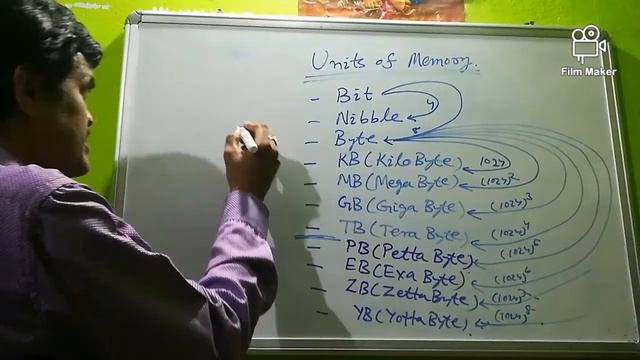 Units of Memory.
- Bit
- Nibble 4
- Byte 8
- KB (Kilo Byte) 1024
- MB (Mega Byte) (1024)²
- GB (Giga Byte) (1024)³
- TB (Tera Byte) (1024)⁴
- PB (Petta Byte)
- EB (Exa Byte) (1024)⁶
- ZB (Zetta Byte) (1024)⁷
- YB (Yotta Byte) (1024)⁸
Film Maker